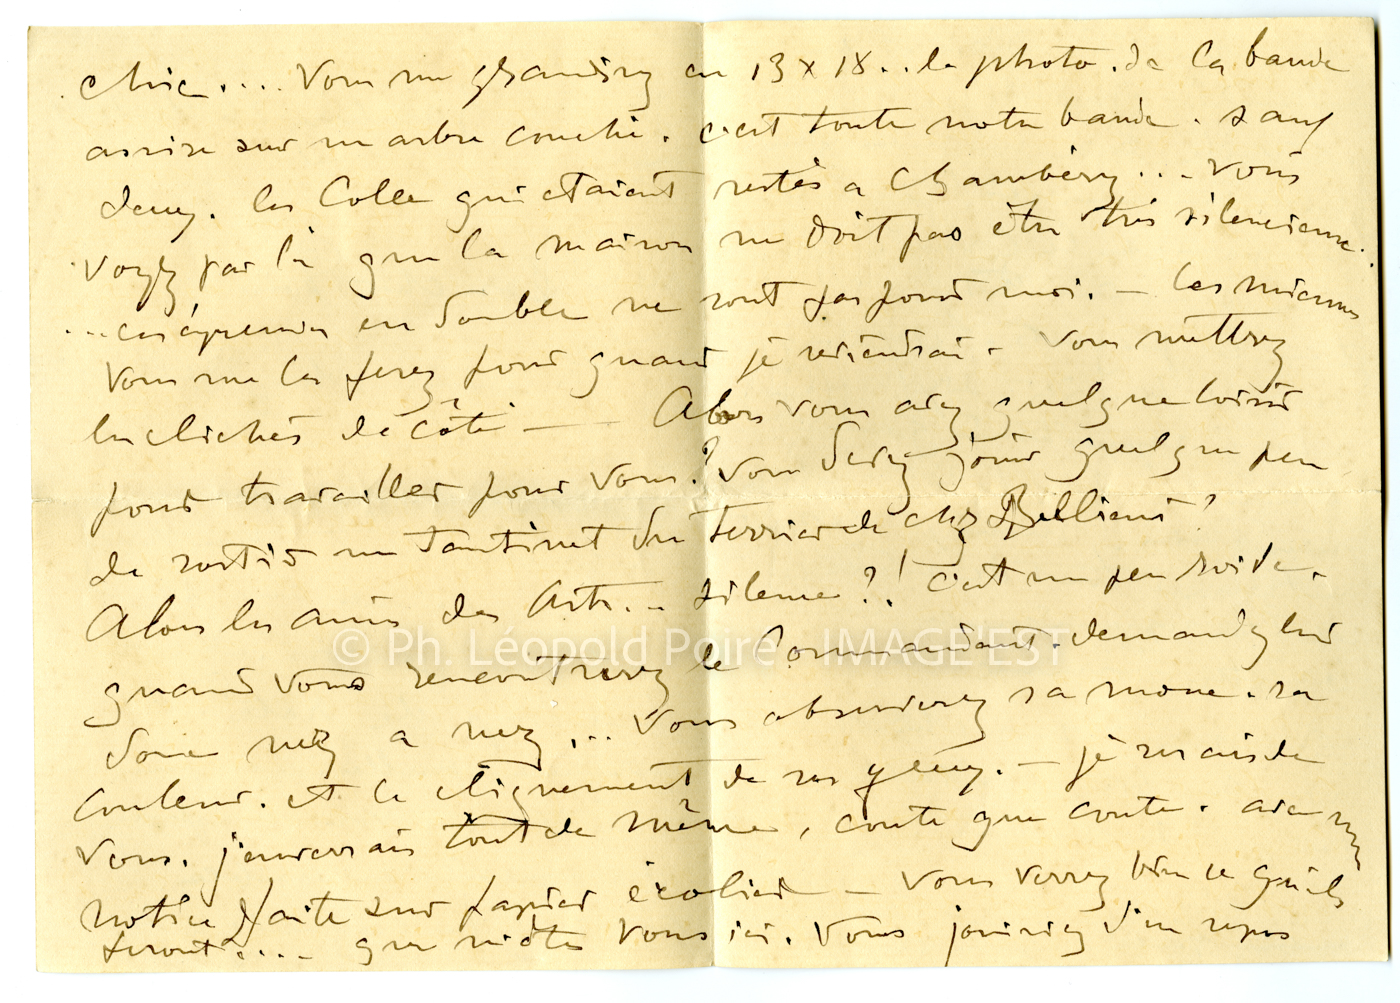 chic.... Vous me grandirez en 13 x 18... la photo. de la bande
assise sur un arbre couché. c'est toute notre bande. sauf
deux. les Colle qui étaient restés à Chambéry... Vous
voyez par là que la maison ne doit pas être très silencieuse..
...ces épreuves en double ne sont pas pour moi. — les miennes
vous me les ferez pour quand je reviendrai. Vous mettrez
les clichés de côté — Alors vous avez quelque loisir
pour travailler pour vous? Vous devez jouir quelque peu
de sortir un tantinet du terrier de chez Bellieni?
Alors les amis des Arts... silence?! c'est un peu roide.
© Ph. Léopold Poiré - IMAGE'EST
quand vous rencontrerez le Commandant. demandez lui
donc nez à nez,... Vous observerez sa moue. sa
couleur. et le clignement de ses yeux. — je serais de
vous. j'enverrais tout de même, coûte que coûte. avec une
notice faite sur papier écolier — Vous verrez bien ce qu'ils
feront?.... que n'êtes vous ici. Vous jouiriez d'un repos